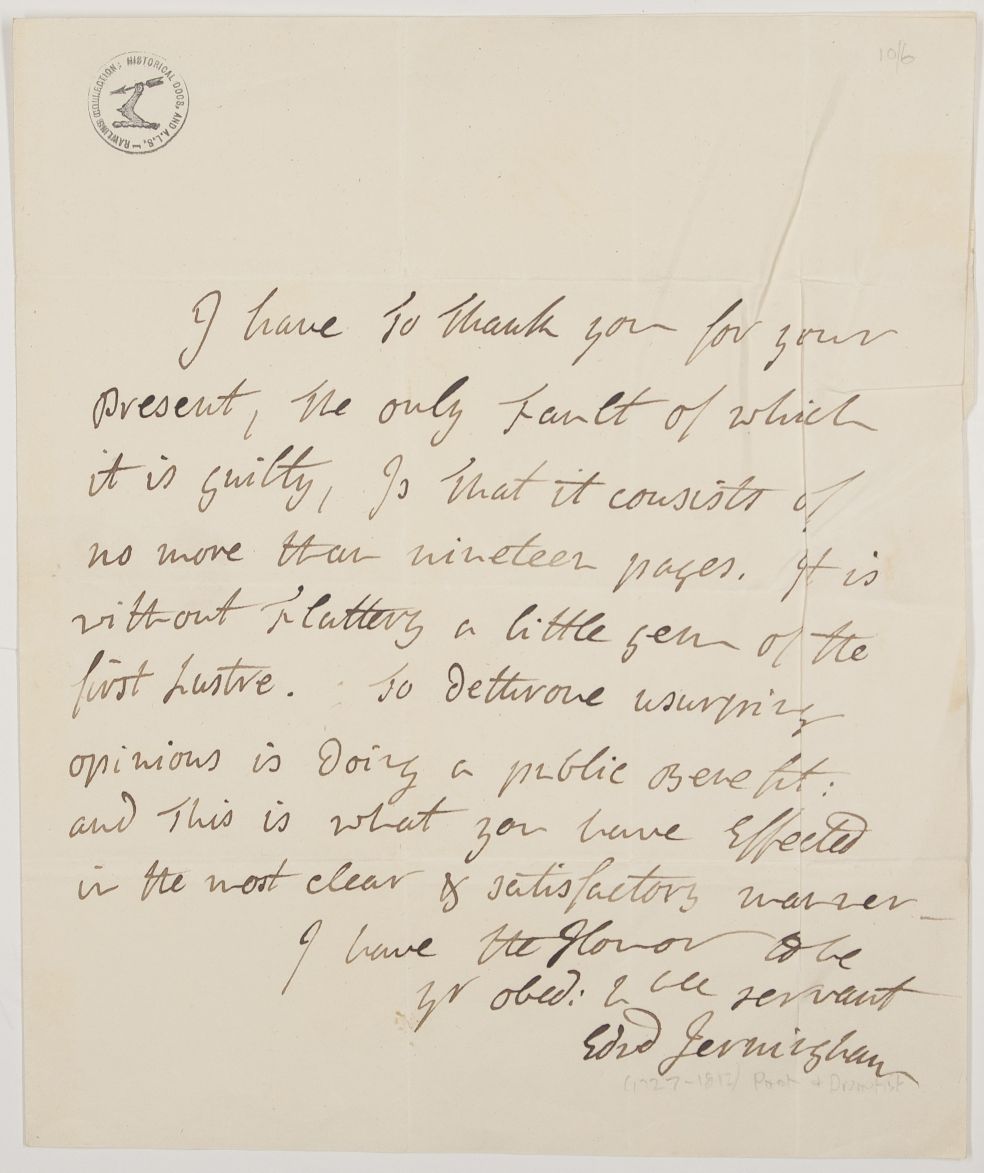 RAWLINS COLLECTION: HISTORICAL DOCS, AND A.L.S.
10/6
I have to thank you for your
present, the only Fault of which
it is guilty, Is that it consists of
no more than nineteen pages. It is
without Flattery a little gem of the
first Lustre. To dethrone usurping
opinions is doing a public Benefit:
and This is what you have Effected
in the most clear & satisfactory manner_
I have the Honor to be
yr obed: & servant
Edrd Jerningham
(1727-1812) Poet & Dramatist